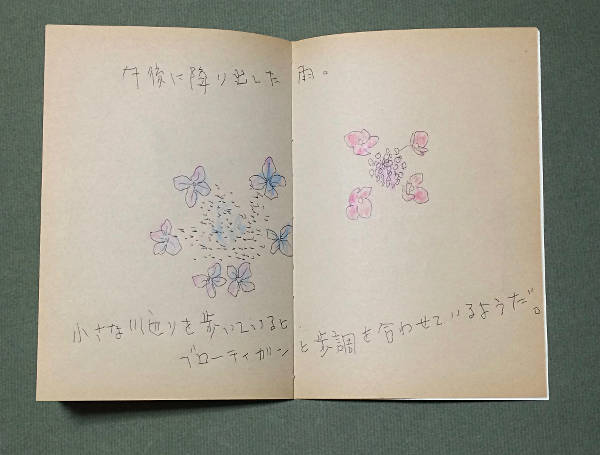 午後に降り出した雨。
小さな川辺りを歩いていると
ブローティガンと歩調を合わせているようだ。